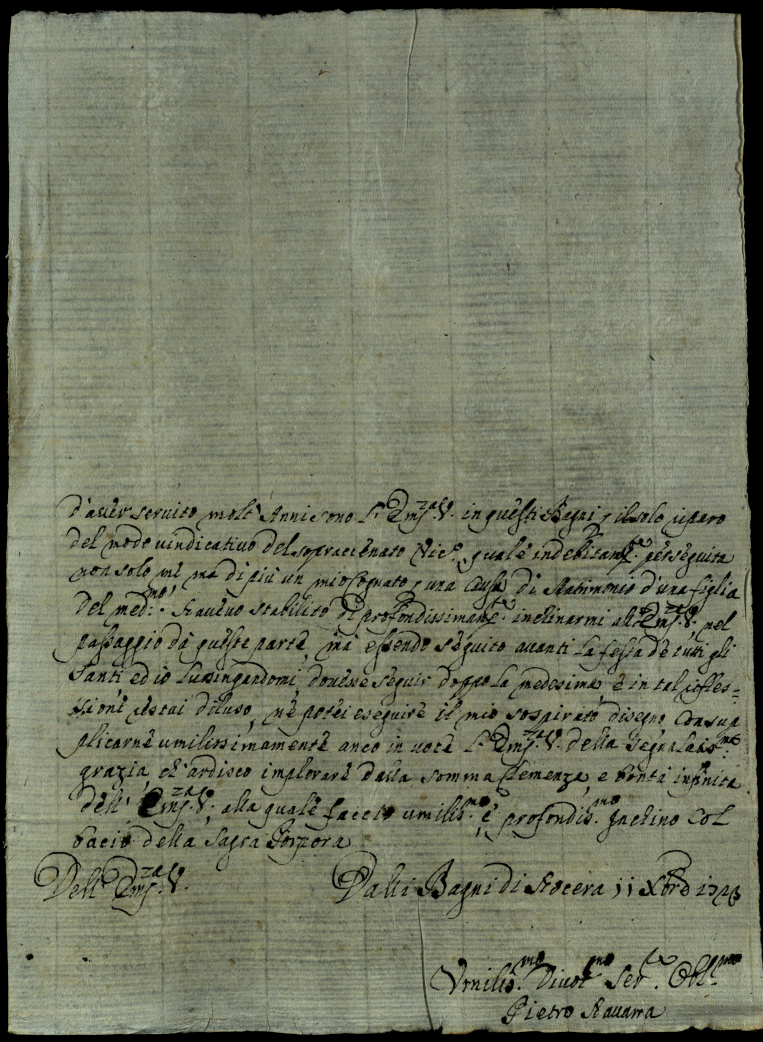 d'aver servito molt'Anni sono l'Emza V. in questi Bagni p il solo riparo
del modo vindicativo del sopracienato Nic.o qual'è indebitamte perseguita
non solo mè ma di più un mio Cognato p una Causa di Matrimonio d'una figlia
del medmo. Havevo stabilito di profondissimamte inclinarmi all'Emza V. nel
passaggio da queste parte, ma essendo seguito avanti la festa de tutti gli
Santi ed io Lusingandomi, dovesse seguir doppo la medesima e in tal rifles=
sione restai diluso, nè potei eseguire il mio sospirato disegno con sup
plicarne umilissimamente anco in voce l'Emza V. della segnalatisma
grazia, ch'ardisco implorare dalla somma Clemenza, e bontà infinita
dell'Emza V. alla quale faccio umilismo e profondismo Inchino col
bacio della Sagra Porpora
Dell'Emza V. Dalli Bagni di Nocera 11 Xbre 1743
Umilismo Divotmo Serre Oblmo
Pietro Navarra